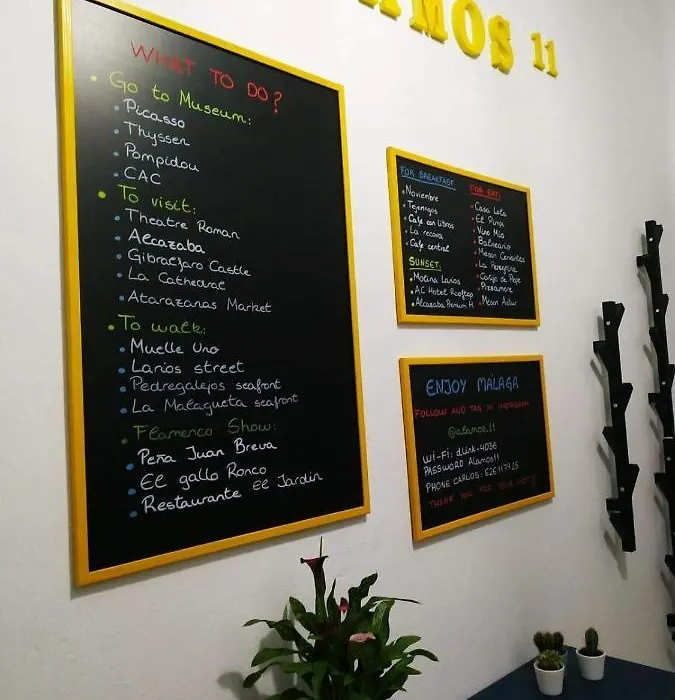 AMOS 11
WHAT TO DO?
• Go to Museum:
• Picasso
• Thyssen
• Pompidou
• CAC
• To visit:
• Theatre Roman
• Alcazaba
• Gibralfaro Castle
• La Cathedral
• Atarazanas Market
• To walk:
• Muelle Uno
• Larios street
• Pedregalejos seafont
• La Malagueta seafont
• Flamenco Show:
• Peña Juan Breva
• El gallo Ronco
• Restaurante El Jardin
FOR BREAKFAST:
• Noviembre
• Tejeringos
• Cafe con libros
• La recova
• Cafe central
SUNSET:
• Molina Larios
• AC Hotel Rooftop
• Alcazaba Premium H
FOR EAT:
• Casa Lola
• El Pimpi
• Vino Mio
• Balneario
• Meson Cervantes
• La Peregrina
• Cortijo de Pepe
• Pizzamore
• Meson Astur
ENJOY MÁLAGA
FOLLOW AND TAG TO INSTAGRAM
@alamos.11
Wi-Fi: dlink-4036
PASSWORD Alamos11
PHONE CARLOS:
THANK YOU FOR YOUR VISIT!!